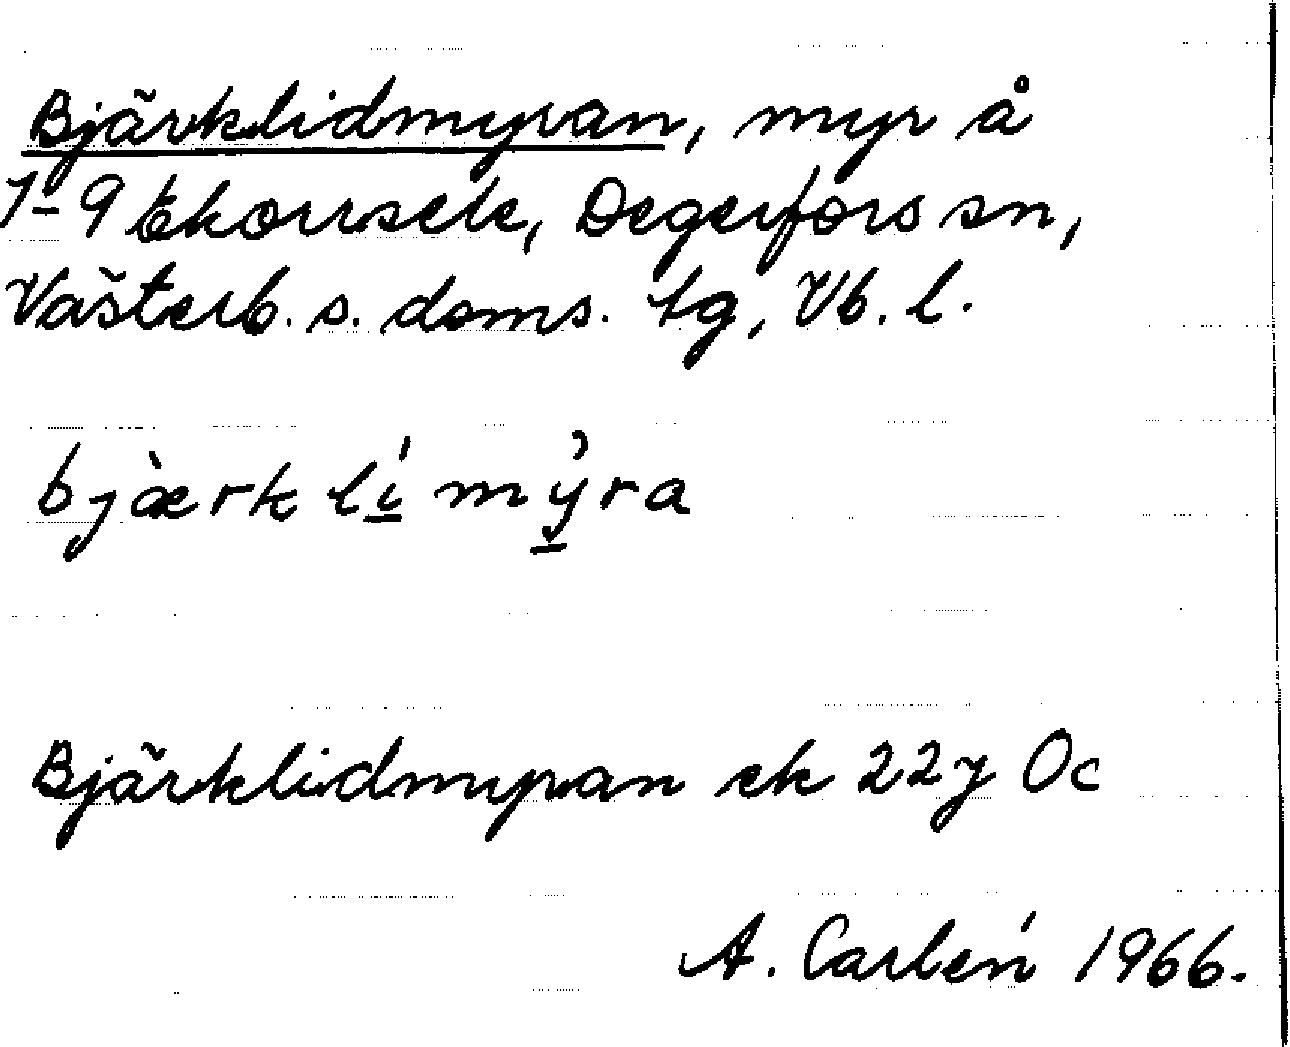 Bjärklidmyran, myr å
1-9 Ekorrsele, Degerfors sn,
Västerb. s. doms. tg, Vb. l.
bjæ̀rk lí̱ mỳ̱ra
Bjärklidmyran ek 22j Oc
A. Carlén 1966.